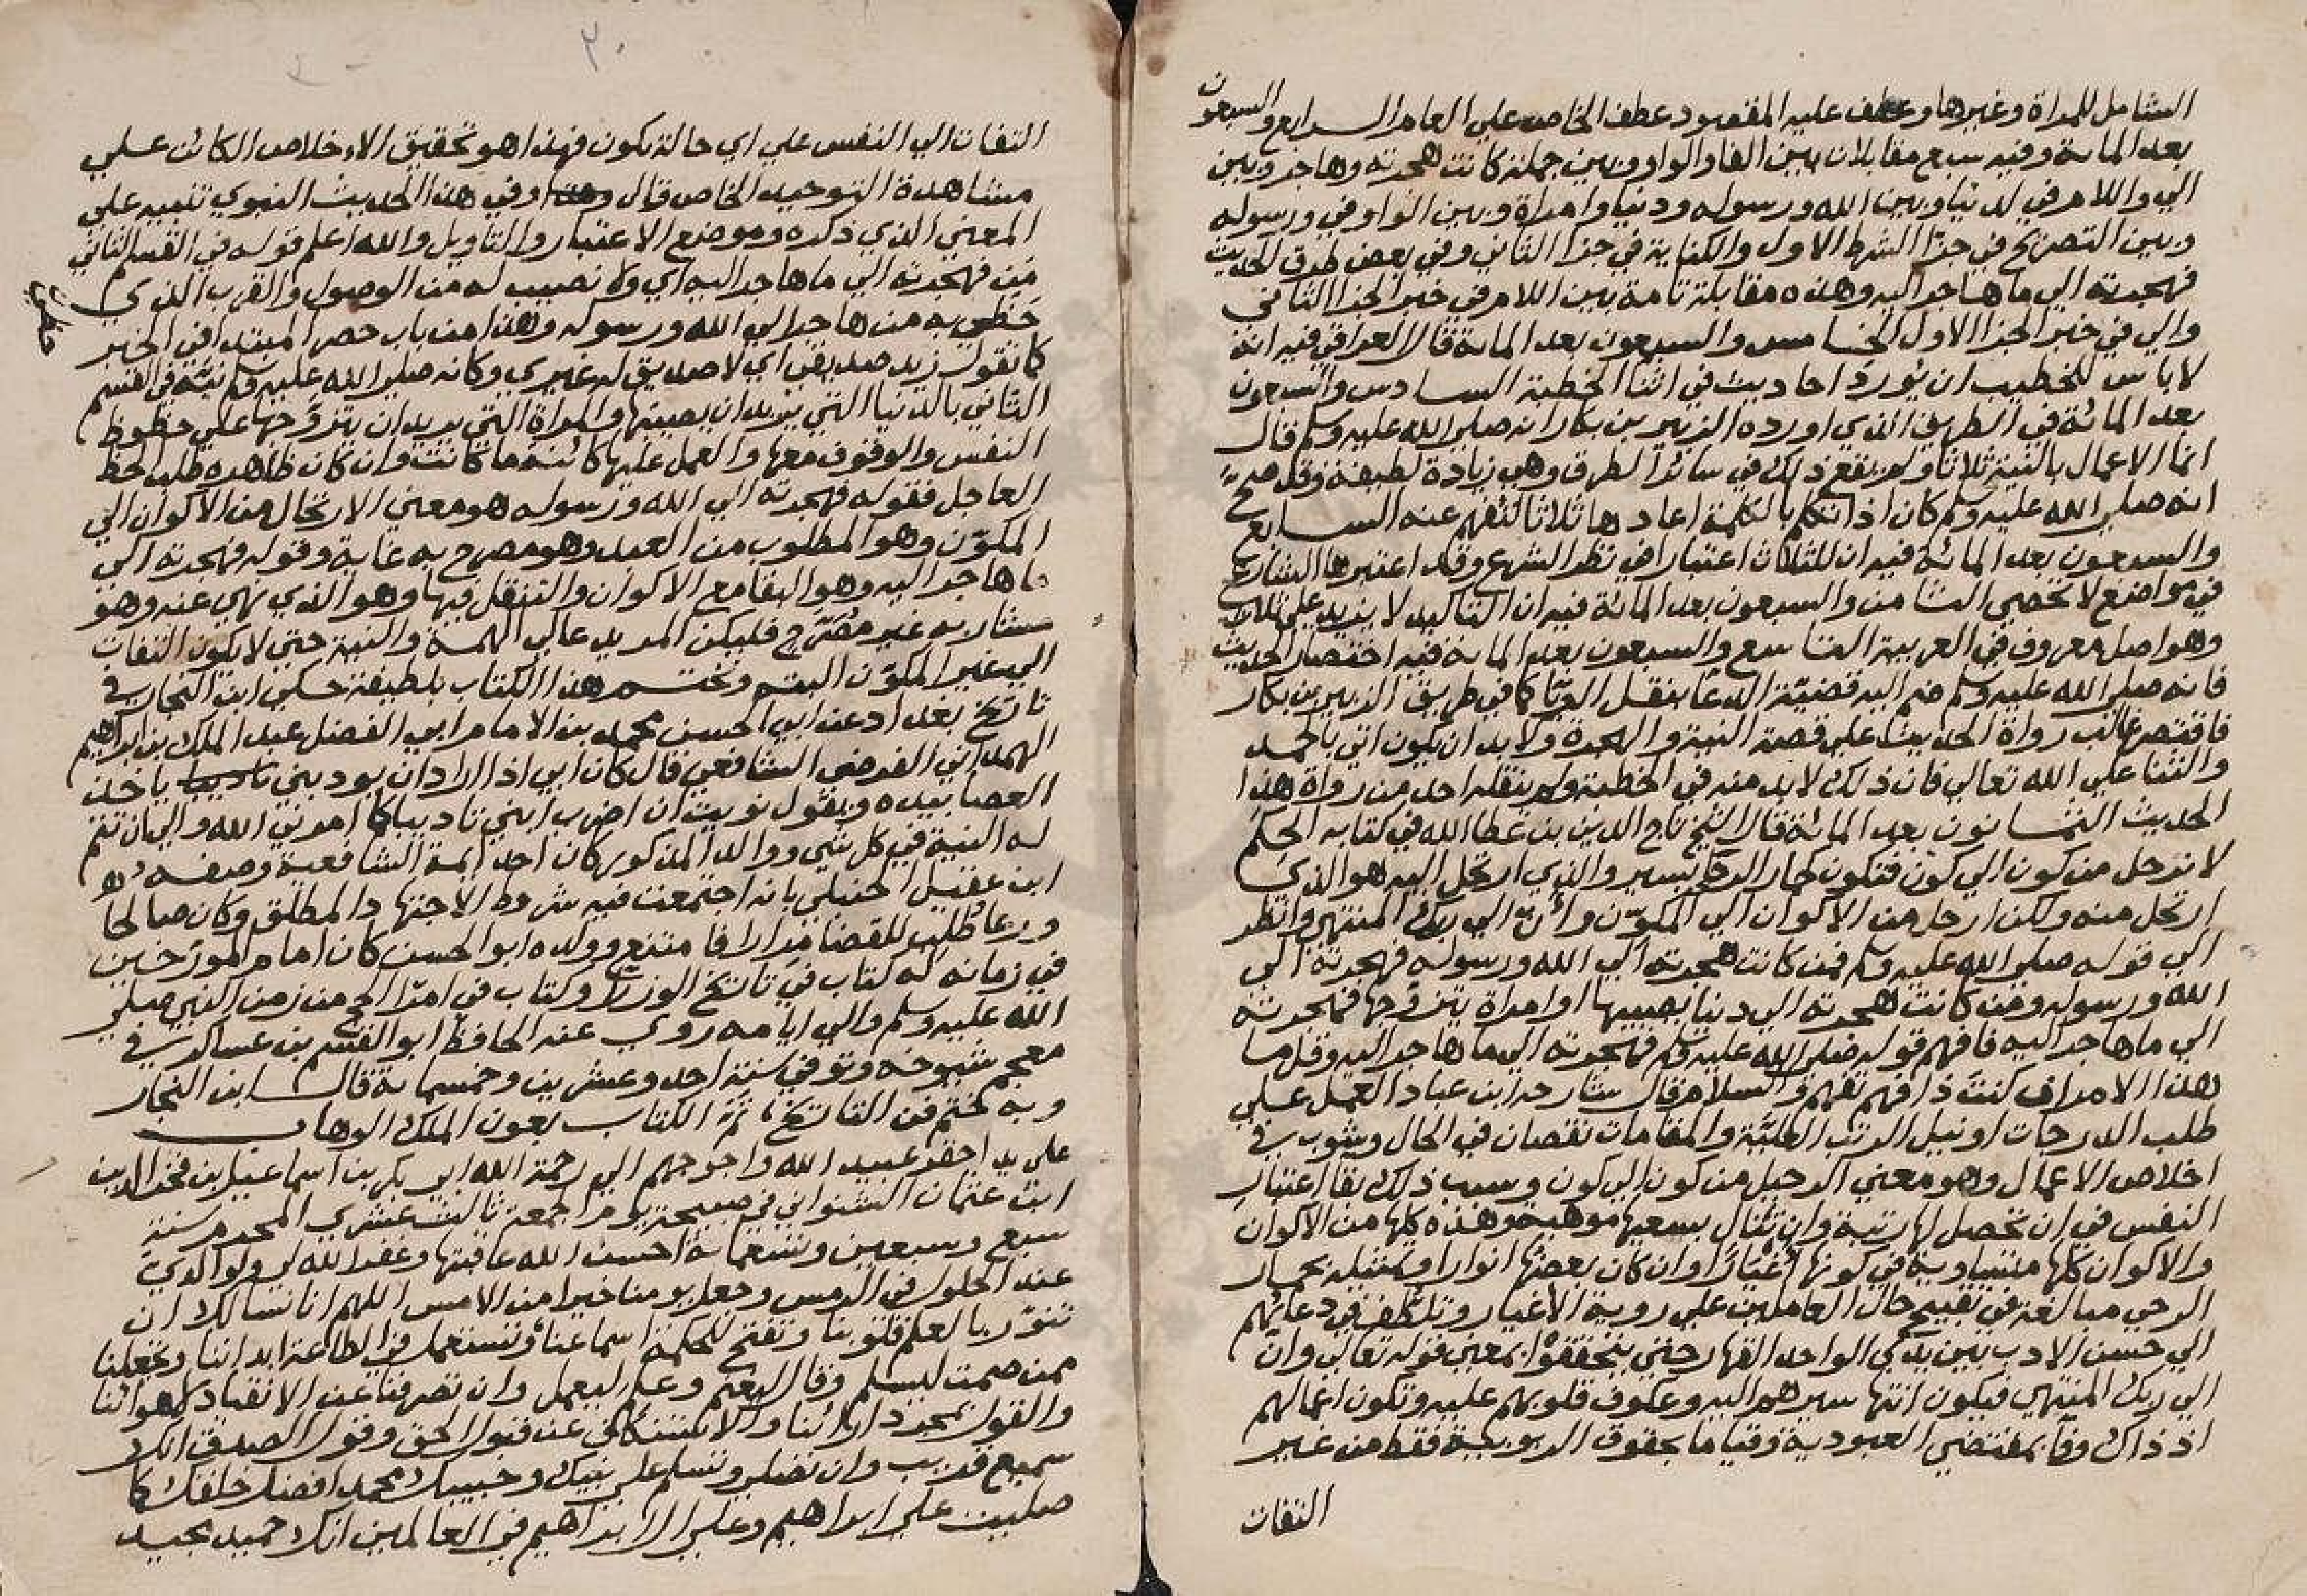 الشامل للمراة وغيرها وعطف عليه المقصود عطف الخاص علي العام الرابع والسبعون
بعد المائة وفيه سبع مقابلات بين الفا والواو وبين جملة كانت هجرته وهاجر وبين
الي واللام في لدنيا وبين الله ورسوله ودنيا وامراة وبين الواو في ورسوله
وبين التصريح في جزا الشرط الاول والكناية في جزا الثاني وفي بعض طرق الحديث
فهجرته الي ما هاجر اليه وهذه مقابلة تامة بين اللام في خبر الجزا الثاني
والي في خبر الجزا الاول الخامس والسبعون بعد المائة قال العراقي فيه انه
لا باس للخطيب ان يورد احاديث في اثنا الخطبة السادس والسبعون
بعد المائة في الطريق الذي اورده الزبير بن بكار انه صلي الله عليه وسلم قال
انما الاعمال بالنية ثلاثا ولم يقع ذلك في سائر الطرق وهي زيادة لطيفة وقد صح
انه صلي الله عليه وسلم كان اذا تكلم بالكلمة اعادها ثلاثا لتفهم عنه السابع
والسبعون بعد المائة فيه ان للثلاث اعتبارا في نظر الشرع وقد اعتبرها الشارع
في مواضع لا تحصي الثامن والسبعون بعد المائة فيه ان التاكيد لا يزيد علي ثلاث
وهو اصل معروف في العربية التاسع والسبعون بعد المائة فيه اختصار الحديث
فانه صلي الله عليه وسلم ضم اليه قضية الدعا بنقل الوبا كما في طريق الزبير بن بكار
فاقتصر غالب رواة الحديث علي قصة النية والهجرة ولا بد ان يكون اتي بالحمد
والثنا علي الله تعالي فان ذلك لا بد منه في الخطبة ولم ينقله احد من رواة هذا
الحديث الثمانون بعد المائة قال الشيخ تاج الدين بن عطا الله في كتابه الحكم
لا ترحل من كون الي كون فتكون كحمار الرحا يسير والذي ارتحل اليه هو الذي
ارتحل منه ولكن ارحل من الاكوان الي المكوّن وأنّ الي ربك المنتهي وانظر
الي قوله صلي الله عليه وسلم فمن كانت هجرته الي الله ورسوله فهجرته الي
الله ورسوله ومن كانت هجرته الي دنيا يصيبها او امراة يتزوجها فهجرته
الي ما هاجر اليه فافهم قوله صلي الله عليه وسلم فهجرته الي ما هاجر اليه وتامل
هذا الامر ان كنت ذا فهم تفهم والسلام قال شارحه ابن عباد العمل علي
طلب الدرجات او نيل الرتب العليّة والمقامات نقصان في الحال وشوب في
اخلاص الاعمال وهو معني الرحيل من كون الي كون وسبب ذلك بقا اعتبار
النفس في ان تحصل لها رتبة وان تنال بسعيها موهبة وهذه كلها من الاكوان
والاكوان كلها متساوية في كونها أغيارًا وان كان بعضها انوارا وتمثيله بحمار
الرحي مبالغة في تقبيح حال العاملين علي روية الاغيار وتلطف في دعائهم
الي حسن الادب بين يدي الواحد القهار حتي يتحققوا بمعني قوله تعالي وان
الي ربك المنتهي فيكون انتها سيرهم اليه وعكوف قلوبهم عليه وتكون اعمالهم
اذ ذاك وفا بمقتضي العبودية وقياما بحقوق الربوبية فقط من غير
التفات
التفات الي النفس علي اي حالة تكون فهذا هو تحقيق الاخلاص الكائن علي
مشاهدة التوحيد الخاص قال وفي هذا الحديث النبوي تنبيه علي
المعني الذي ذكره وموضع الاعتبار والتاويل والله اعلم قوله في القسم الثاني
من فهجرته الي ما هاجر اليه اي ولا نصيب له من الوصول والقرب الذي
حظي به من هاجر الي الله ورسوله وهذا من باب حصر المبتدا في الخبر
كما تقول زيد صديقي اي لا صديق له غيري وكانه صلي الله عليه وسلم نبّه في القسم
الثاني بالدنيا التي يريد ان يصيبها والمراة التي يريد ان يتزوجها علي حظوظ
النفس والوقوف معها والعمل عليها كائنة ما كانت وان كان ظاهره طلب الحظ
العاجل فقوله فهجرته الي الله ورسوله هو معني الارتحال من الاكوان الي
المكوّن وهو المطلوب من العبد وهو مصرح به غاية وقوله فهجرته الي
ما هاجر اليه وهو البقا مع الاكوان والتنقل فيها وهو الذي نهي عنه وهو
مشار به غير مُصَرّح فليكن المريد عالي الهمة والنية حتي لا يكون التفات
الي غير المكوّن البتة ونختم هذا الكتاب بلطيفة حكي ابن النجار في
تاريخ بغداد عن ابي الحسن محمد بن الامام ابي الفضل عبد الملك بن ابراهيم
الهمداني الفرضي الشافعي قال كان ابي اذا اراد ان يودبني ياخذ
العصا بيده ويقول نويت ان اضرب ابني تاديبا كما امرني الله والي ان تتم
له النية في كل شي ووالد المذكور كان احد ايمة الشافعية وصفه
ابن عقيل الحنبلي بانه اجتمعت فيه شروط الاجتهاد المطلق وكان صالحا
ورعا طُلِبَ للقضا مرارا فامتنع وولده ابو الحسن كان امام المورخين
في زمانه له كتاب في تاريخ الوزرا وكتاب في امرا الحج من زمن النبي صلي
الله عليه وسلم والي ايامه روي عنه الحافظ ابو القسم بن عساكر في
معجم شيوخه وتوفي سنة احد وعشرين وخمسمائة قال ابن النجار
وبه ختم فن التاريخ، تم الكتاب بعون الملك الوهاب
علي يد احقر عبيد الله واحوجهم الي رحمة الله ابي بكر بن اسماعيل بن فخر الدين
ابن عثمان الشنواني في صبيحة يوم الجمعة ثالث عشري المحرم سنة
سبع وسبعين وتسعمائة احسن الله عاقبتها وغفر الله لي ولوالدي
عند الحلول في الرمس وجعل يومنا خيرا من الامس اللهم انا نسالك ان
تنوّر بالعلم قلوبنا وتفتح للحكمة اسماعنا وتستعمل في الطاعة ابداننا وتجعلنا
ممن صمت ليسلم وقال ليغنم وعلم ليعمل وان تصرفنا عن الانقياد لاهوائنا
والقول بمجرد ارائنا والاستنكاف عن قبول الحق وقول الصدق انك
سميع قريب وان تصلي وتسلم علي نبيك وحبيبك محمد افضل خلقك كما
صليت علي ابراهيم وعلي ال ابراهيم في العالمين انك حميد مجيد